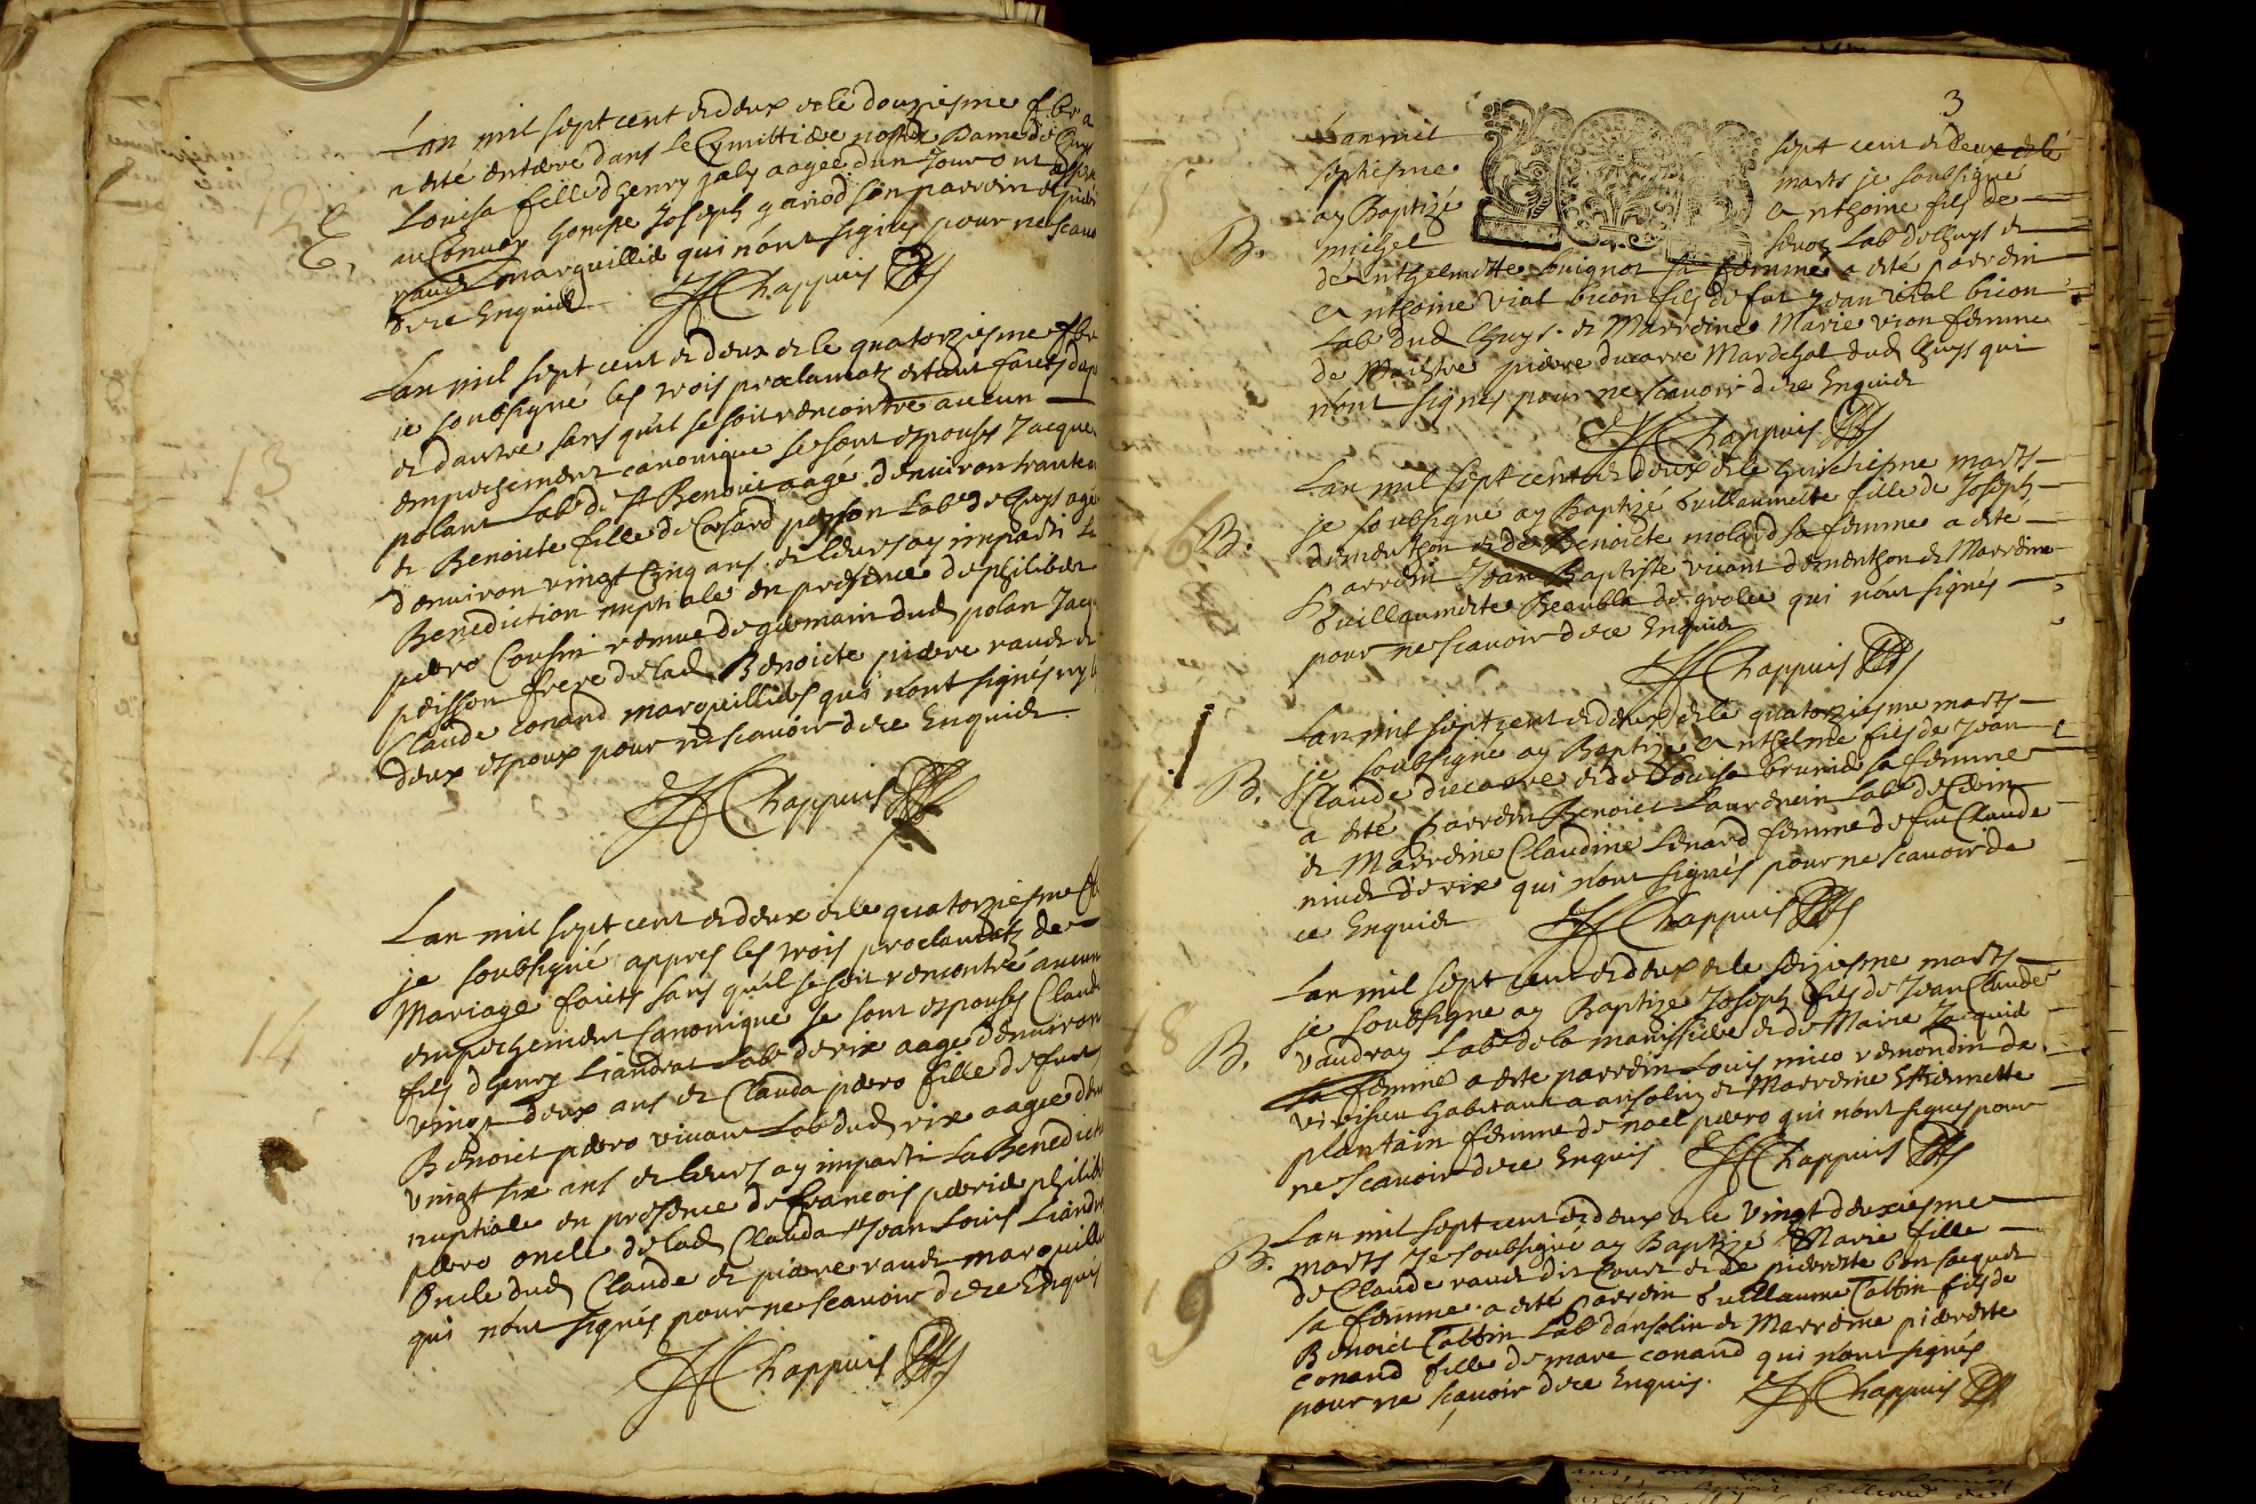 Lan mil sept cent et deux et le douziesme fber a
esté enteré dans le Cymittiere nostre Dame de Cuys
Louisa fille dhenry jaly aagee dun Jour ont assisté
au Convoy honeste Joseph gariod son parrein et pierre
raudet marguillier qui nónt signés pour ne scavoir
de ce Enquis
Chappuis
E.
Lan mil sept cent et deux et le quatorziesme fber
je soubsigné les trois proclamatz estant faicts
et dautre sans quil se soit rencontré aucun
empechement canonique se sont espousés Jacques
polant Lab de St Benoict aagé denviron trante
et Benoicte fille de Cesard poisson Lab de Cuys agee
denviron vingt Cinq ans et leurs ay imparti La
Benediction nuptiale en presence de philibert
pero Cousin remué de germain dud polan Jacques
poisson frere de lad Benoicte pierre raudet et
Claude conand marguilliers qui nónt signés ny les
deux espoux pour ne scavoir de ce Enquis
Chappuis
13
Lan mil sept cent et deux et le quatorziesme fber
je soubsigné appres les trois proclamatz de
Mariage faicts sans quil se soit rencontré aucun
empechement Canonique se sont espousés Claude
fils dhenry Liandrat Lab de rix aagé denviron
vingt deux ans et Clauda pero fille de fut
Benoict pero vivant Lab dud rix aagee denviron
vingt six ans et leurs ay imparti La Benediction
nuptiale en presence de francois perrier philibert
pero oncle de lad Clauda et Jean Louis Liandrat
Oncle dud Claude et pierre raudet marguillier
qui nónt signés pour ne scavoir de ce Enquis
Chappuis
14
3
Lan mil sept cent et deux et le
septiesme marts je soubsigné
ay Baptizé Anthoine fils de
michel Lab de Chuys et
B.
de Anthelmette Souignot sa femme a esté parrein
Anthoine vial bicon fils de fut Jean vial bicon
Lab dud Chuys et Marreine Marie vion femme
de Maistre pierre ducarre Mareschal dud Chuys qui
nónt signés pour ne scavoir de ce Enquis
Chappuis
Lan mil sept cent et deux et le huictiesme marts
je soubsigné ay Baptizé Guillaumette fille de Joseph
B.
dementhon et de Benoicte molard sa femme a esté
parrein Jean Baptiste vivant dementhon et Marreine
Guillaumette Beauble de grolee qui nónt signés
pour ne scavoir de ce Enquis
Chappuis
16
Lan mil sept cent et deux et le quatorziesme marts
je soubsigné ay Baptizé Anthelme fils de Jean
B.
Claude ducarre et de Louisa brunier sa femme
a esté parrein Benoict Laurencin Lab de Cein
et Marreine Claudine Lenard femme de fut Claude
niudet de rix qui nónt signés pour ne scavoir de
ce Enquis
Chappuis
17
Lan mil sept cent et deux et le seiziesme marts
je soubsigné ay Baptizé Joseph fils de Jean Claude
B.
vaudray Lab de la manissiere et de Marie Jacquier
sa femme a esté parrein Louis mico remondin de
virisieu habitant a ansolin et Marreine Estiennette
plantain femme de noel pero qui nónt signés pour
ne scavoir de ce Enquis
Chappuis
18
Lan mil sept cent et deux et le vingt deuxiesme
marts Je soubsigné ay Baptizé Marie fille
B.
de Claude raudet dit Couet et de pierrette bonjacquet
sa femme a esté parrein Guillaume Cottin fils de
Benoict Cottin Lab dansolin et Marreine pierrette
conand fille de marc conand qui nónt signés
pour ne scavoir de ce Enquis
Chappuis
19